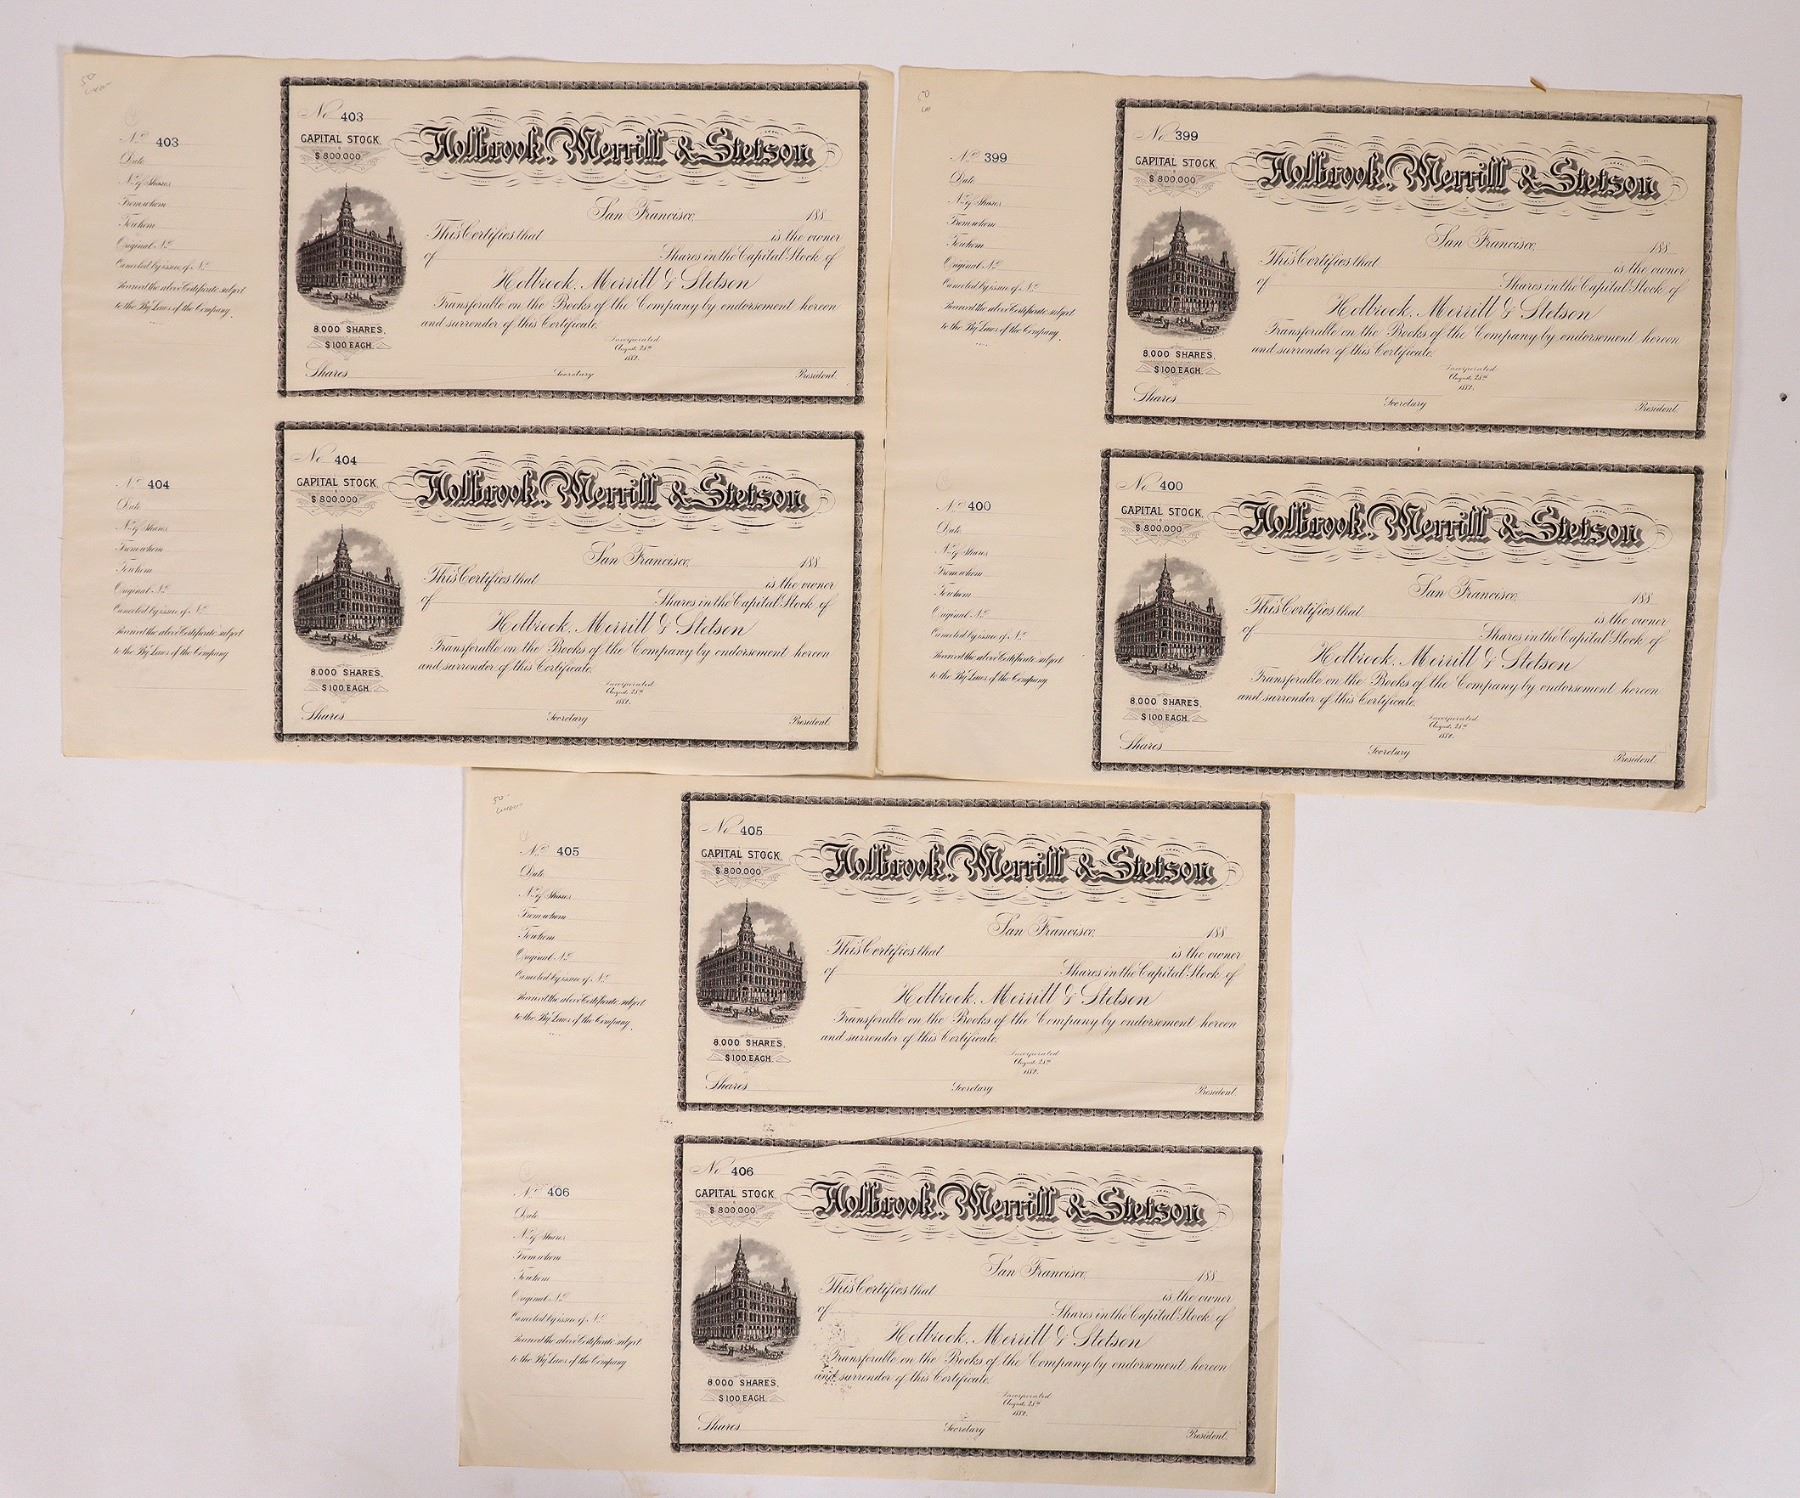 No 403
Date
No of Shares
From whom
To whom
Original No
Canceled by issue of No
Received the above Certificate subject
to the By Laws of the Company.
No 403
CAPITAL STOCK
$800,000
Holbrook, Merrill & Stetson
San Francisco, 188
This Certifies that is the owner
of Shares in the Capital Stock of
Holbrook, Merrill & Stetson
Transferable on the Books of the Company by endorsement hereon
and surrender of this Certificate.
8,000 SHARES,
$100 EACH.
Incorporated
August 25th
1882.
Shares Secretary President.
No 404
Date
No of Shares
From whom
To whom
Original No
Canceled by issue of No
Received the above Certificate subject
to the By Laws of the Company
No 404
CAPITAL STOCK
$800,000
Holbrook, Merrill & Stetson
San Francisco, 188
This Certifies that is the owner
of Shares in the Capital Stock of
Holbrook, Merrill & Stetson
Transferable on the Books of the Company by endorsement hereon
and surrender of this Certificate.
8,000 SHARES,
$100 EACH.
Incorporated
August 25th
1882.
Shares Secretary President.
No 399
Date
No of Shares
From whom
To whom
Original No
Canceled by issue of No
Received the above Certificate subject
to the By Laws of the Company.
No 399
CAPITAL STOCK
$800,000
Holbrook, Merrill & Stetson
San Francisco, 188
This Certifies that is the owner
of Shares in the Capital Stock of
Holbrook, Merrill & Stetson
Transferable on the Books of the Company by endorsement hereon
and surrender of this Certificate.
8,000 SHARES,
$100 EACH.
Incorporated
August 25th
1882.
Shares Secretary President.
No 400
Date
No of Shares
From whom
To whom
Original No
Canceled by issue of No
Received the above Certificate subject
to the By Laws of the Company
No 400
CAPITAL STOCK
$800,000
Holbrook, Merrill & Stetson
San Francisco, 188
This Certifies that is the owner
of Shares in the Capital Stock of
Holbrook, Merrill & Stetson
Transferable on the Books of the Company by endorsement hereon
and surrender of this Certificate.
8,000 SHARES,
$100 EACH.
Incorporated
August 25th
1882.
Shares Secretary President.
No 405
Date
No of Shares
From whom
To whom
Original No
Canceled by issue of No
Received the above Certificate subject
to the By Laws of the Company.
No 405
CAPITAL STOCK
$800,000
Holbrook, Merrill & Stetson
San Francisco, 188
This Certifies that is the owner
of Shares in the Capital Stock of
Holbrook, Merrill & Stetson
Transferable on the Books of the Company by endorsement hereon
and surrender of this Certificate.
8,000 SHARES,
$100 EACH.
Incorporated
August 25th
1882.
Shares Secretary President.
No 406
Date
No of Shares
From whom
To whom
Original No
Canceled by issue of No
Received the above Certificate subject
to the By Laws of the Company
No 406
CAPITAL STOCK
$800,000
Holbrook, Merrill & Stetson
San Francisco, 188
This Certifies that is the owner
of Shares in the Capital Stock of
Holbrook, Merrill & Stetson
Transferable on the Books of the Company by endorsement hereon
and surrender of this Certificate.
8,000 SHARES,
$100 EACH.
Incorporated
August 25th
1882.
Shares Secretary President.